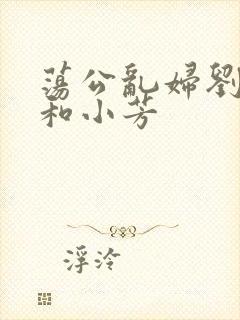 蕩公亂婦劉
和小芳
浮泠